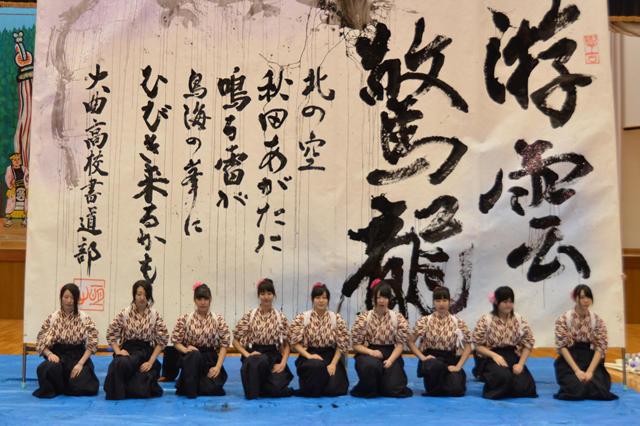 游雲
驚龍
北の空
秋田あがたに
鳴る雷が
鳥海の峯に
ひびき来るかも
大曲高校書道部